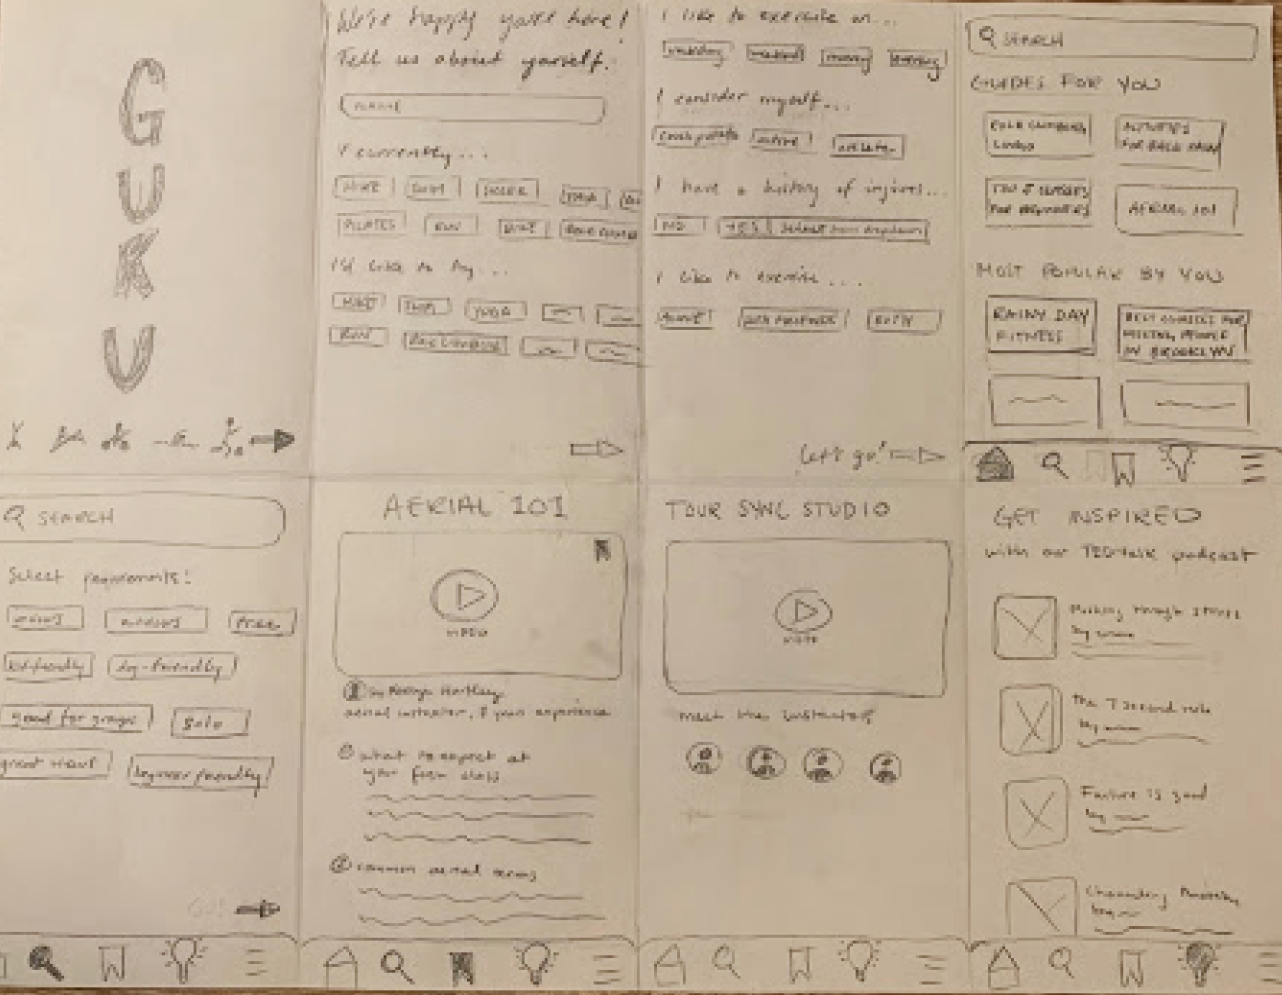 G
U
K
U
We're happy you're here!
Tell us about yourself.
NAME
I currently...
HIKE SWIM SOCCER YOGA
PILATES RUN BIKE ROCK CLIMBING
I'd like to try...
HIKE SWIM YOGA
RUN ROCK CLIMBING
I like to exercise on...
weekday weekend morning evening
I consider myself...
couch potato active athlete
I have a history of injuries...
NO YES select from dropdown
I like to exercise...
ALONE WITH FRIENDS BOTH
Let's go!
SEARCH
GUIDES FOR YOU
ROCK CLIMBING
ACTIVITIES
FOR BACK PAIN
TOP 5 CLASSES
FOR BEGINNERS
AERIAL 101
MOST POPULAR BY YOU
RAINY DAY
FITNESS
BEST CLASSES FOR
MEETING PEOPLE
IN BROOKLYN
SEARCH
Select requirements:
indoors outdoors free
kid-friendly dog-friendly
good for groups solo
great views beginner friendly
GO!
AERIAL 101
VIDEO
aerial instructor, 8 year experience
① what to expect at
your first class
② common aerial terms
TOUR SYNC STUDIO
VIDEO
meet the instructors
GET INSPIRED
with our TED-talk podcast
Pushing through stress
by
The 7 second rule
by
Failure is good
by
by